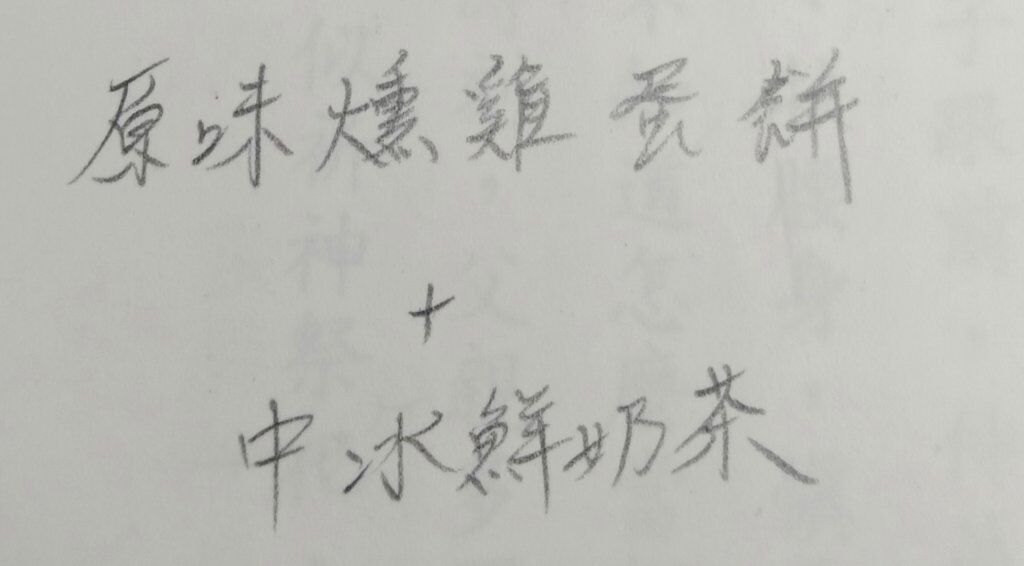 原味燻雞蛋餅
+
中冰鮮奶茶